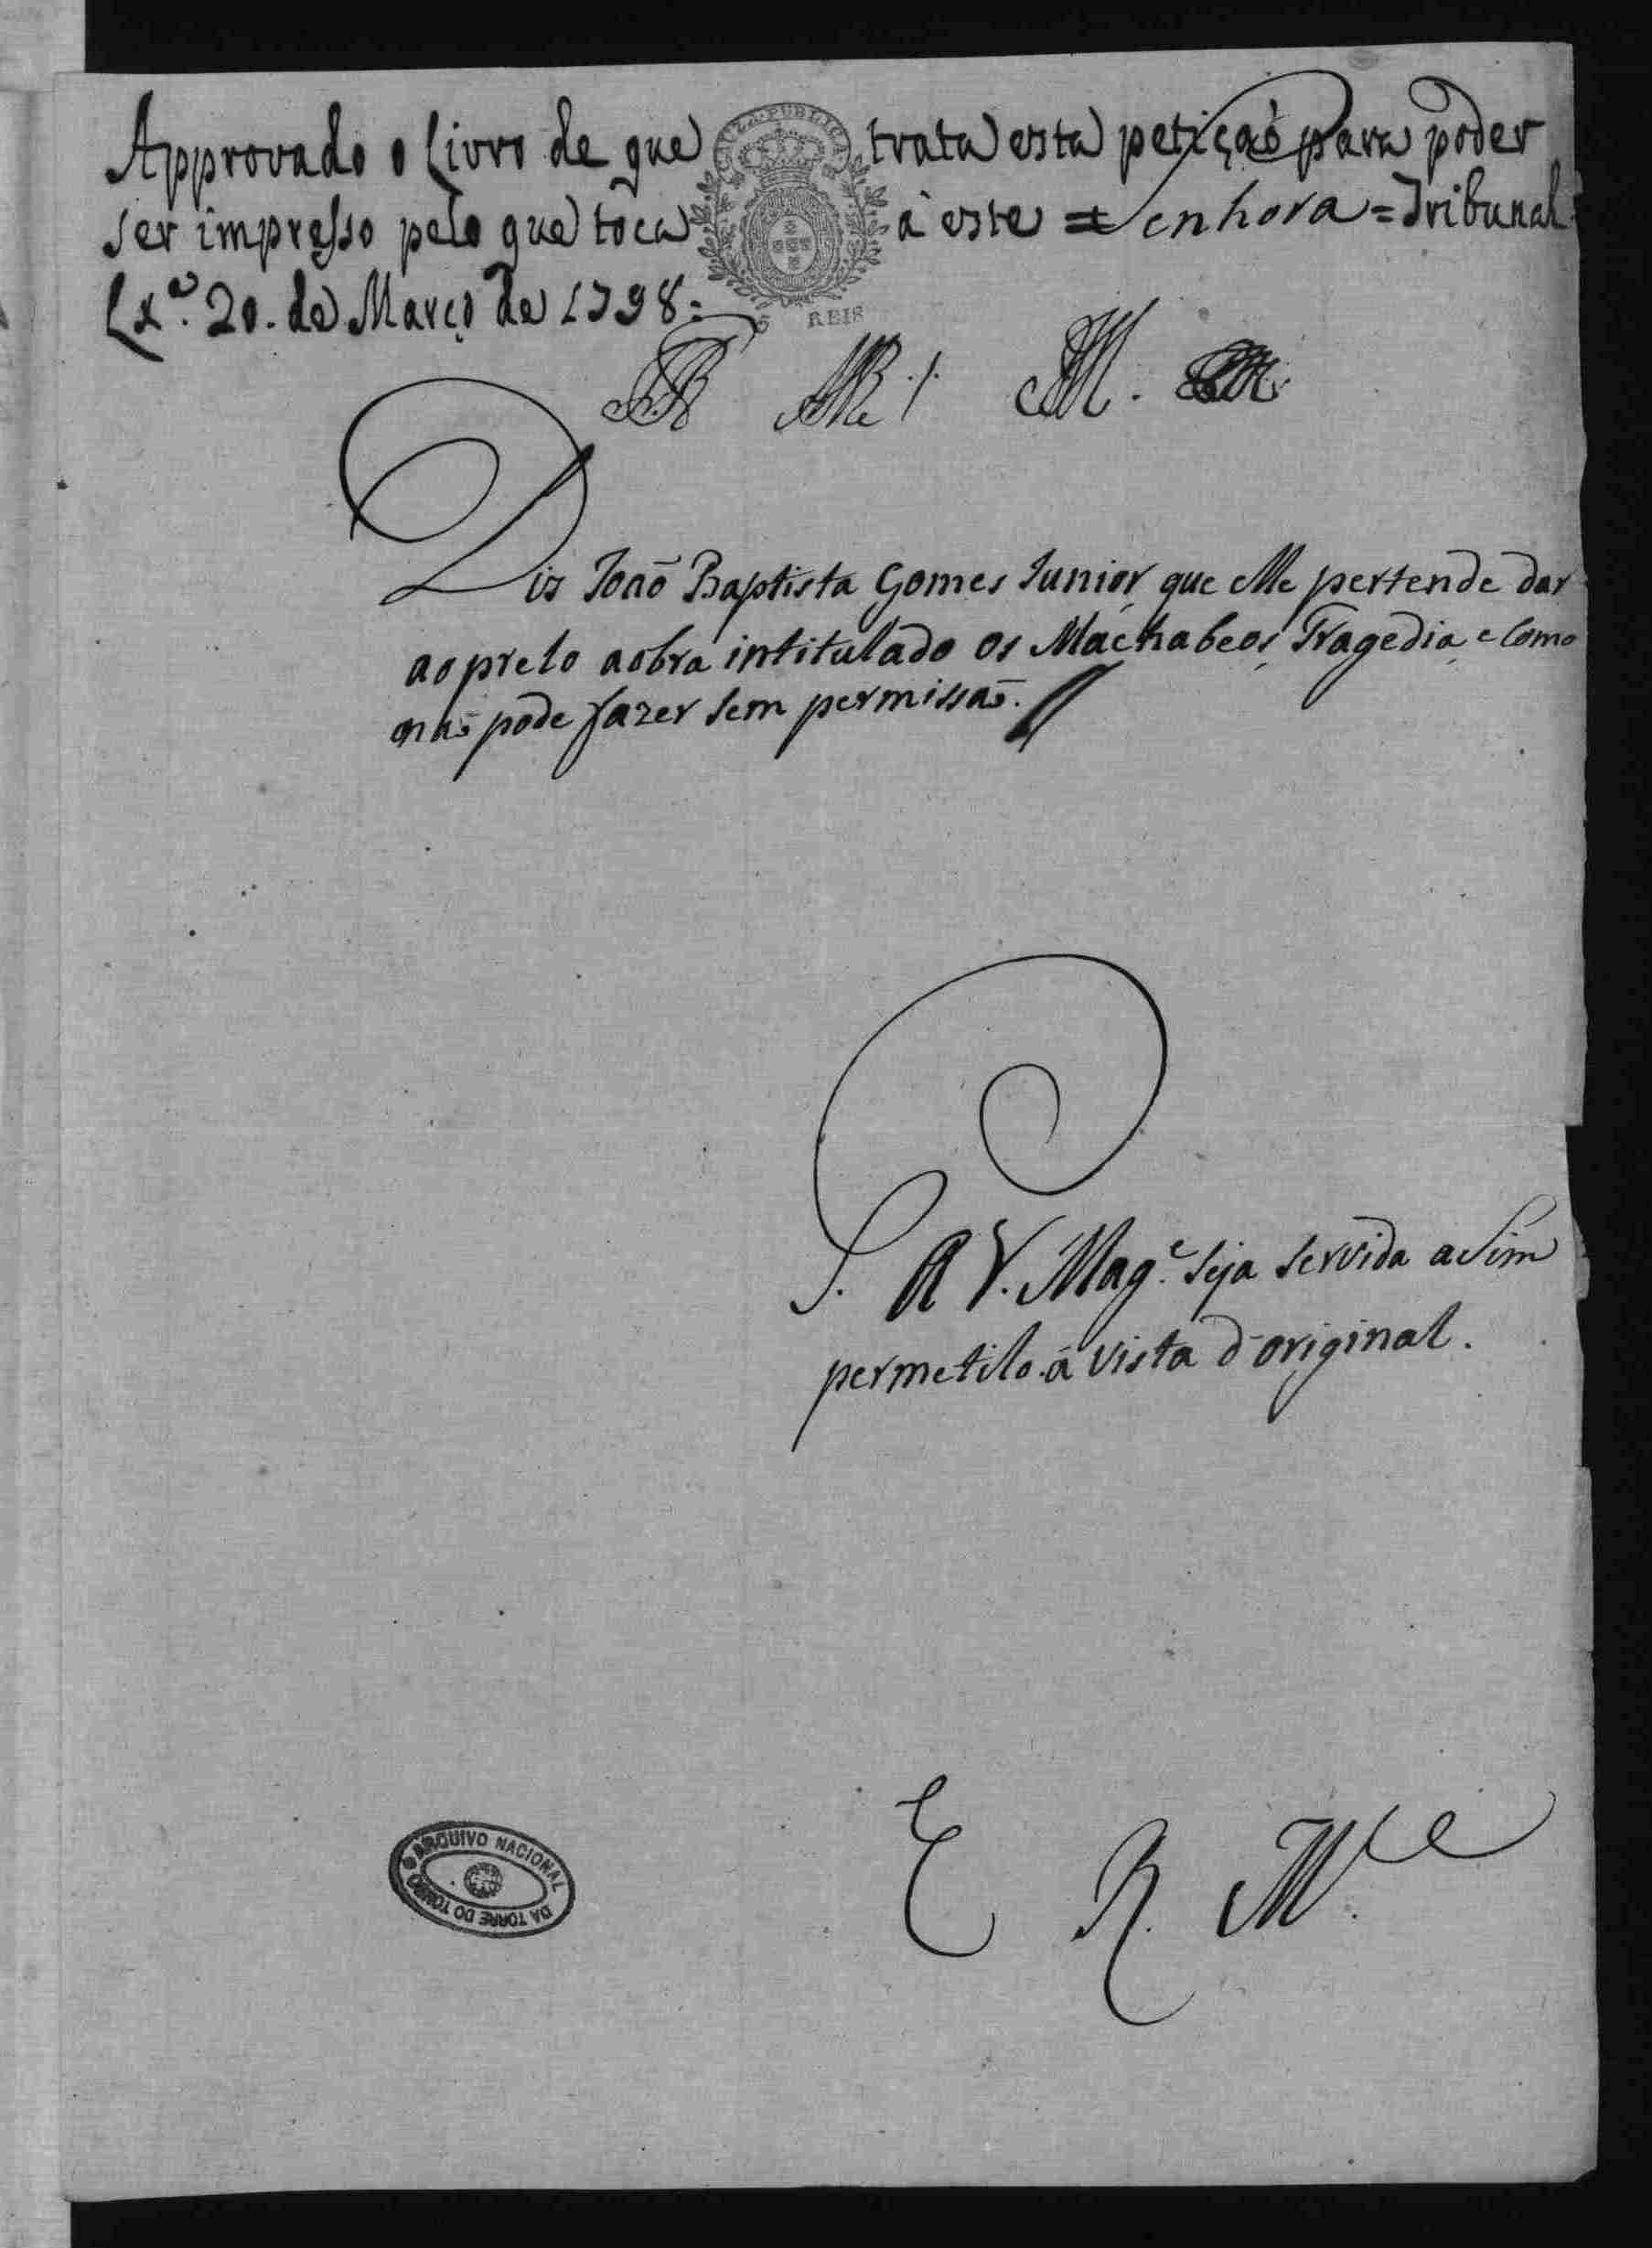 Approvado o Livro de que trata esta petiçaõ para poder
ser impresso pelo que toca à este = Senhora = Tribunal
Lxª. 20. de Março de 1798:
CAUZA PUBLICA
REIS
Diz Joaõ Baptista Gomes Junior, que elle pertende dar
ao prelo a obra intitulado os Machabeos, Tragedia, e como
naõ pode fazer sem permissaõ.
P. A V. Mag.e seja servida asim
permetilo á vista d'original.
E R. M.ce
ARQUIVO NACIONAL
DA TORRE DO TOMBO